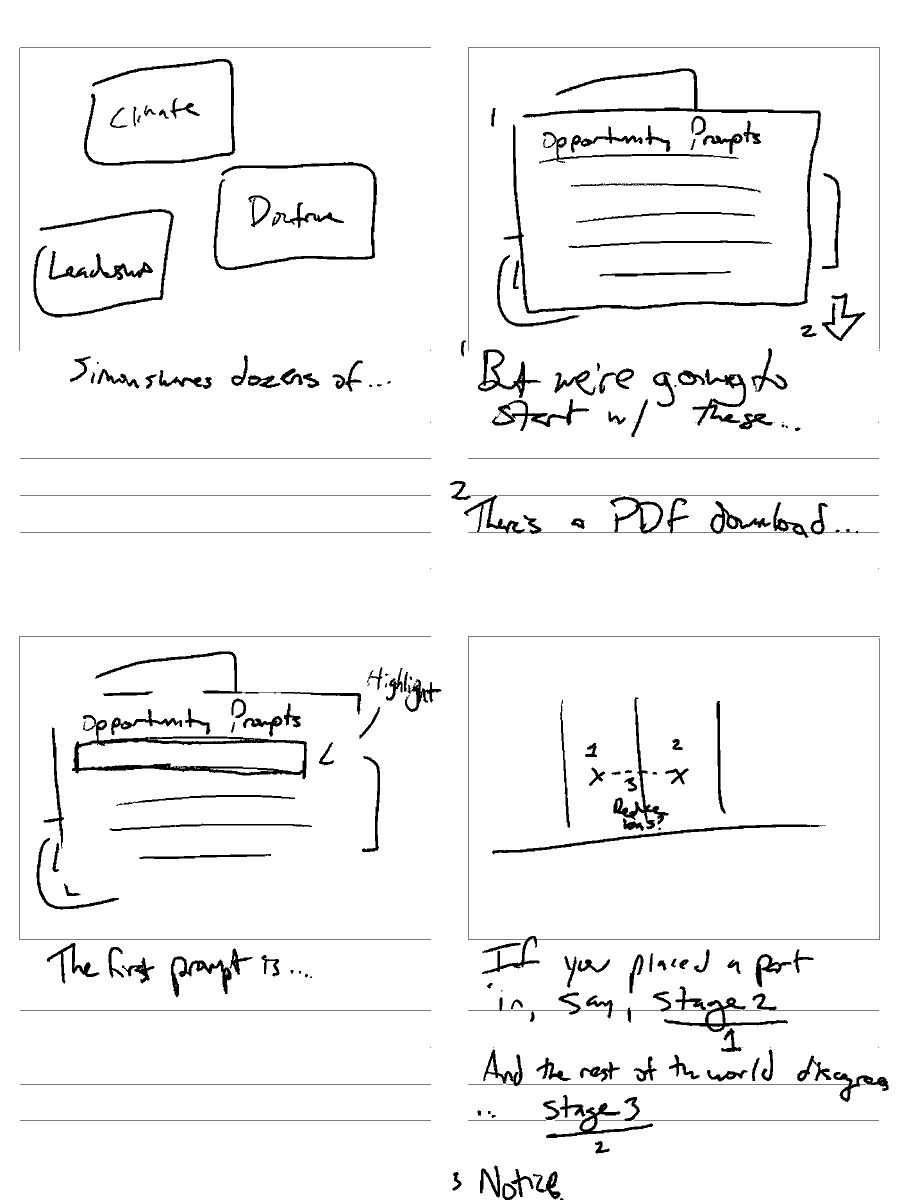 Climate
Doctrine
Leadership
Simon shares dozens of...
1
Opportunity Prompts
2
1 But we're going to
start w/ these...
2 There's a PDF download...
Highlight
Opportunity Prompts
The first prompt is...
1 2
X X
3
If you placed a part
in, say, stage 2
1
And the rest of the world disagrees
... stage 3
2
3 Notice